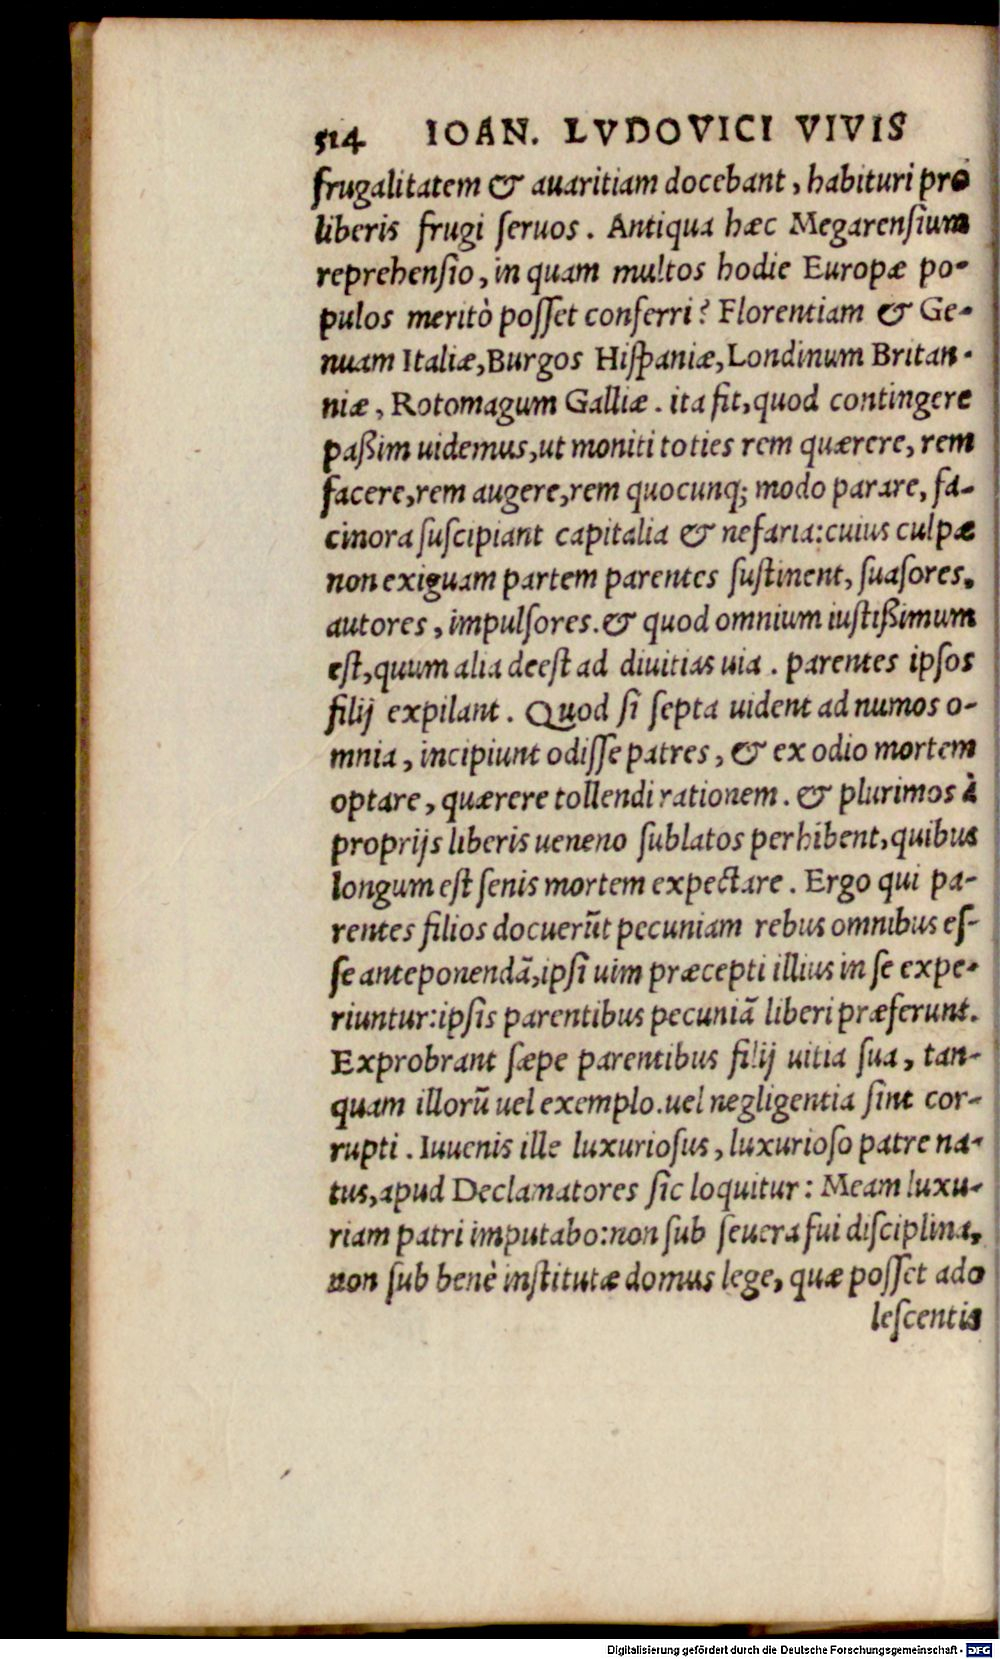 514 IOAN. LVDOVICI VIVIS
frugalitatem & auaritiam docebant, habituri pro
liberis frugi ſeruos. Antiqua hæc Megarenſium
reprehenſio, in quam multos hodie Europæ po-
pulos meritò poſſet conferri? Florentiam & Ge-
nuam Italiæ, Burgos Hiſpaniæ, Londinum Britan-
niæ, Rotomagum Galliæ. ita fit, quod contingere
paßim uidemus, ut moniti toties rem quærere, rem
facere, rem augere, rem quocunq; modo parare, fa-
cinora ſuſcipiant capitalia & nefaria: cuius culpæ
non exiguam partem parentes ſuſtinent, ſuaſores,
autores, impulſores. & quod omnium iuſtißimum
eſt, quum alia deeſt ad diuitias uia. parentes ipſos
filij expilant. Quod ſi ſepta uident ad numos o-
mnia, incipiunt odiſſe patres, & ex odio mortem
optare, quærere tollendi rationem. & plurimos à
proprijs liberis ueneno ſublatos perhibent, quibus
longum eſt ſenis mortem expectare. Ergo qui pa-
rentes filios docuerūt pecuniam rebus omnibus eſ-
ſe anteponendā, ipſi uim præcepti illius in ſe expe-
riuntur: ipſis parentibus pecuniā liberi præferunt.
Exprobrant ſæpe parentibus filij uitia ſua, tan-
quam illorū uel exemplo. uel negligentia ſint cor-
rupti. Iuuenis ille luxurioſus, luxurioſo patre na-
tus, apud Declamatores ſic loquitur: Meam luxu-
riam patri imputabo: non ſub ſeuera fui diſciplina,
non ſub benè inſtitutæ domus lege, quæ poſſet ado
leſcentis
Digitalisierung gefördert durch die Deutsche Forschungsgemeinschaft - DFG